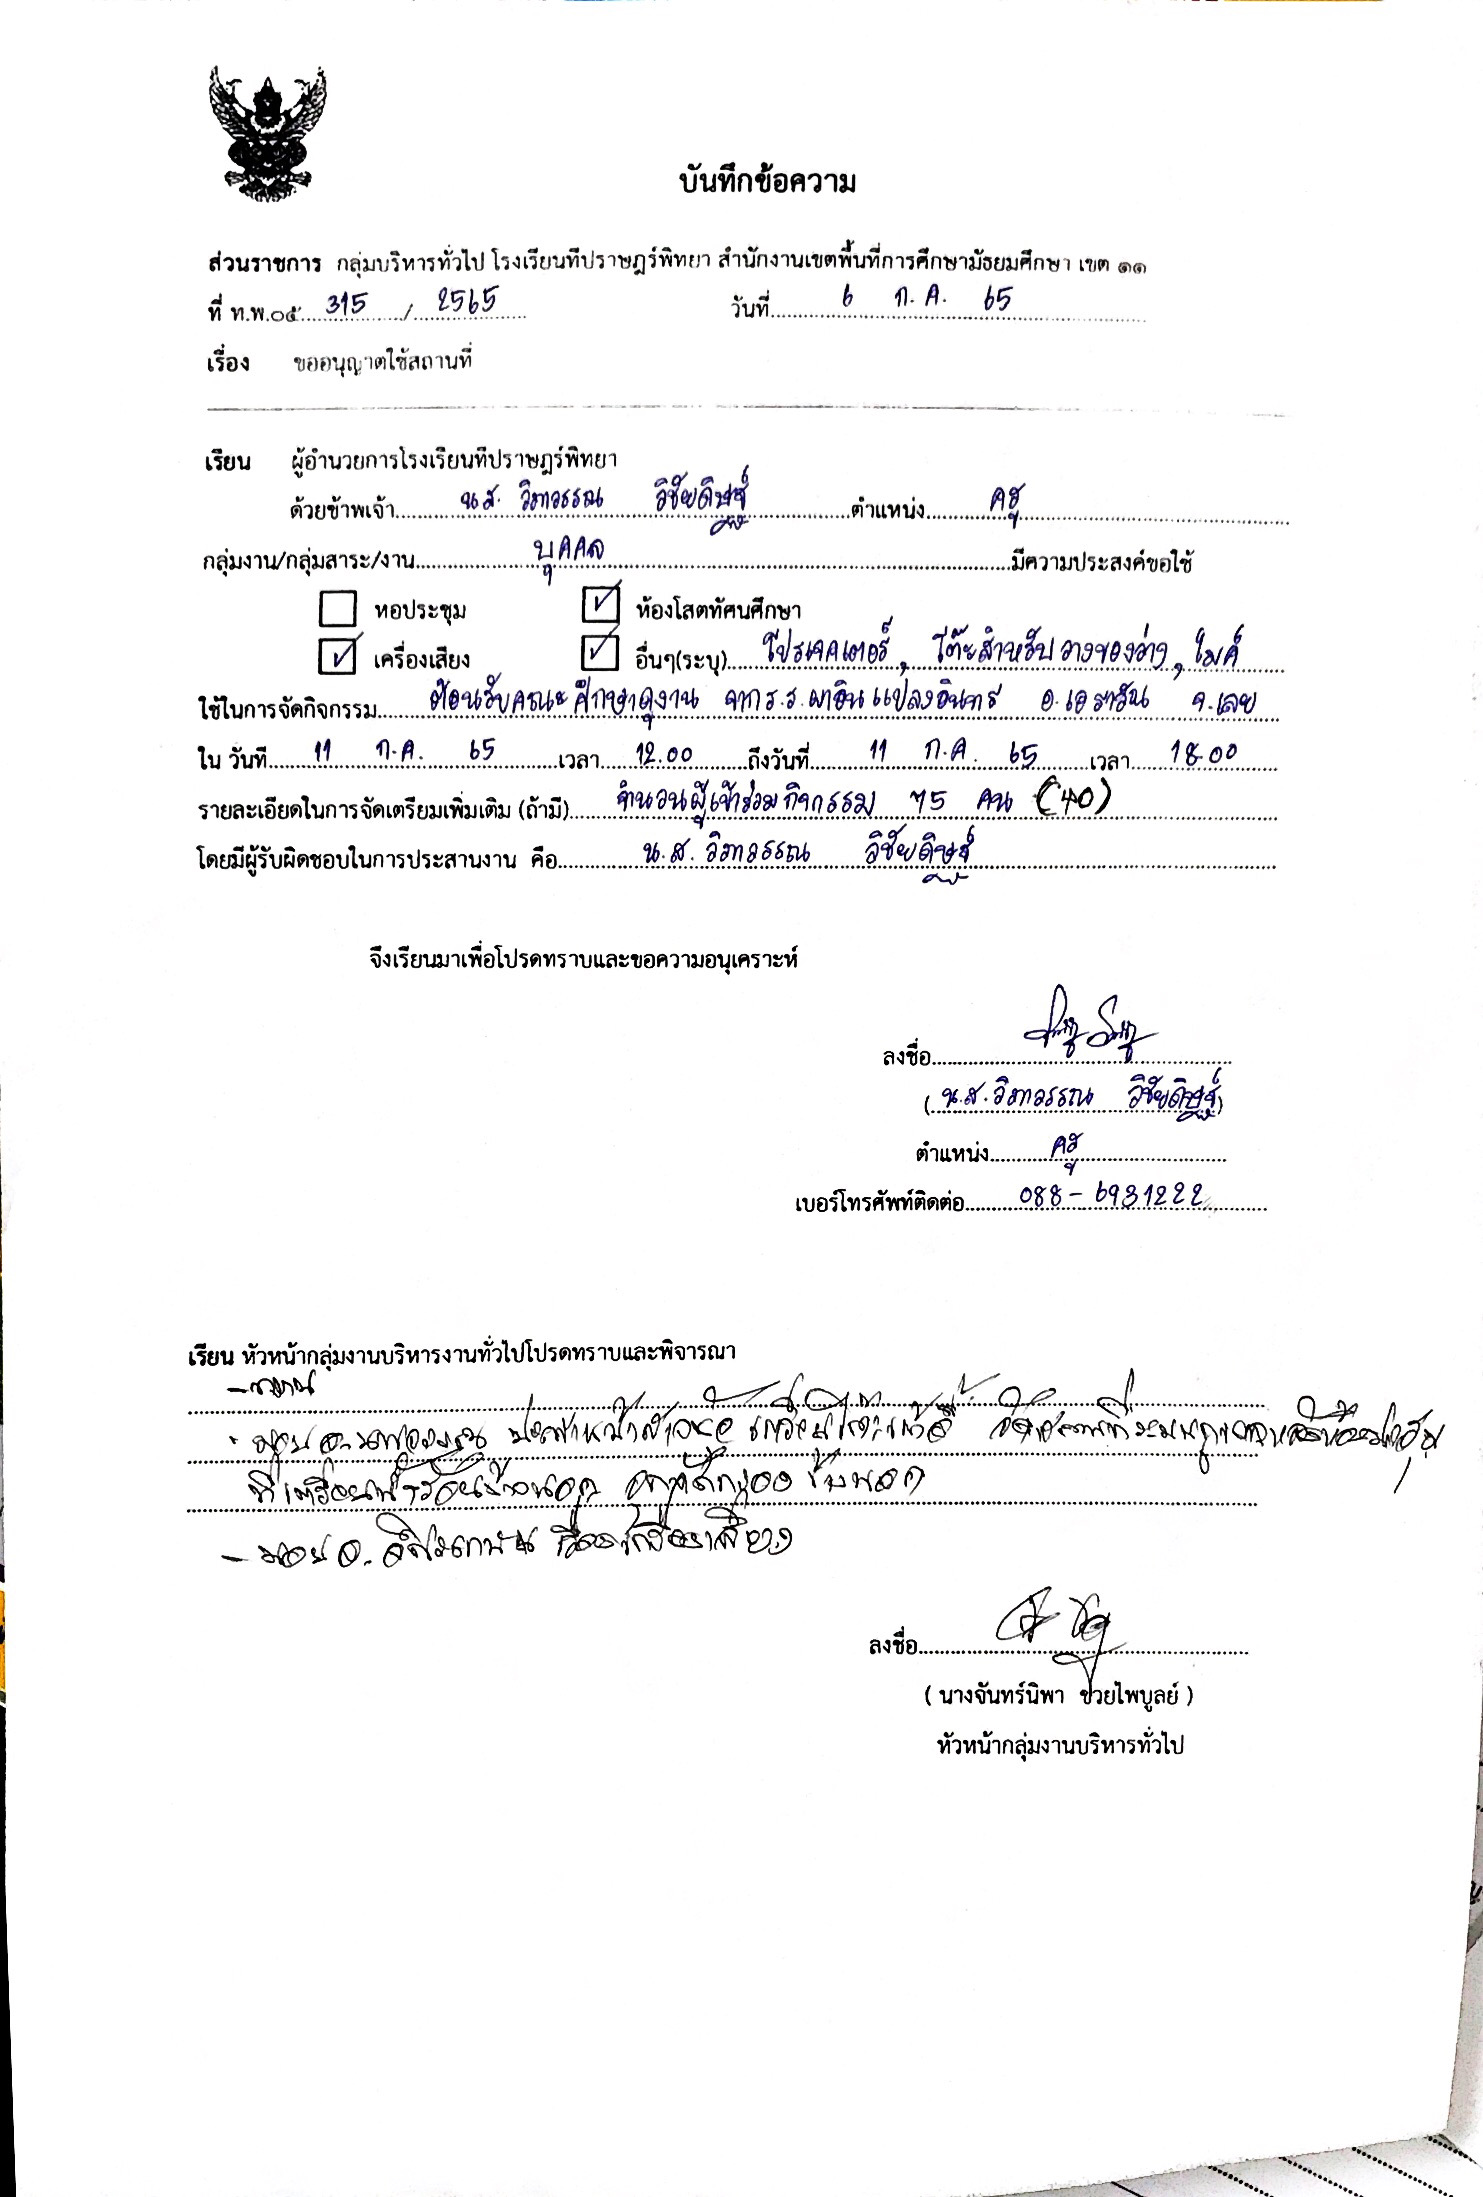 บันทึกข้อความ
ส่วนราชการ กลุ่มบริหารทั่วไป โรงเรียนทีปราษฎร์พิทยา สำนักงานเขตพื้นที่การศึกษามัธยมศึกษา เขต ๑๑
ที่ ท.พ.๐๕ 315 / 2565 วันที่ 6 ก.ค. 65
เรื่อง ขออนุญาตใช้สถานที่
เรียน ผู้อำนวยการโรงเรียนทีปราษฎร์พิทยา
ด้วยข้าพเจ้า น.ส. วิภาวรรณ วิชัยดิษฐ์ ตำแหน่ง ครู
กลุ่มงาน/กลุ่มสาระ/งาน บุคคล มีความประสงค์ขอใช้
หอประชุม ✓ ห้องโสตทัศนศึกษา
✓ เครื่องเสียง ✓ อื่นๆ(ระบุ) โปรเจคเตอร์, โต๊ะสำหรับวางของว่าง, ไมค์
ใช้ในการจัดกิจกรรม ต้อนรับคณะศึกษาดูงาน จาก ร.ร.ผาอินทร์แปลงอินทร์ อ.เอราวัณ จ.เลย
ใน วันที่ 11 ก.ค. 65 เวลา 12.00 ถึงวันที่ 11 ก.ค. 65 เวลา 18.00
รายละเอียดในการจัดเตรียมเพิ่มเติม (ถ้ามี) จำนวนผู้เข้าร่วมกิจกรรม 75 คน (40)
โดยมีผู้รับผิดชอบในการประสานงาน คือ น.ส. วิภาวรรณ วิชัยดิษฐ์
จึงเรียนมาเพื่อโปรดทราบและขอความอนุเคราะห์
ลงชื่อ
(น.ส.วิภาวรรณ วิชัยดิษฐ์)
ตำแหน่ง ครู
เบอร์โทรศัพท์ติดต่อ 088-6931222
เรียน หัวหน้ากลุ่มงานบริหารงานทั่วไปโปรดทราบและพิจารณา
-ทราบ
- มอบ อ.
ลงชื่อ
( นางจันทร์นิพา ช่วยไพบูลย์ )
หัวหน้ากลุ่มงานบริหารทั่วไป